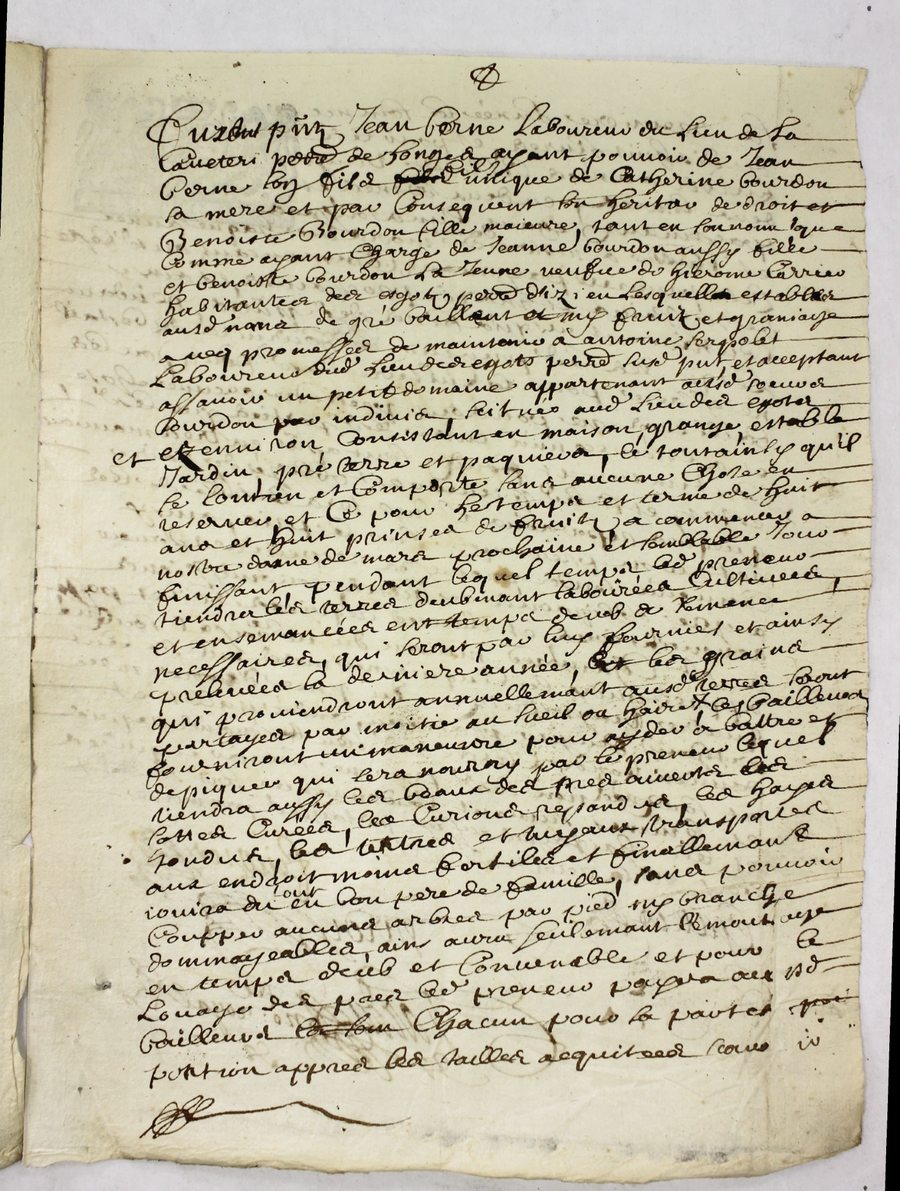 furent pntz Jean Verne Laboureur du Lieu de La
parsse de Longes ayant pouvoir de Jean
Verne son fils unique de Catherine bourdon
sa mere et par Consequent son heritier de droit et
Benoiste Bourdon fille maieure, tant en son nom que
Comme ayant Charge de Jeanne bourdon aussy fille
et benoiste bourdon La Jeune veufve de hierome
habitantes des esgotz Lesquelles establies
de gré baillent fruitz et graniage
avec promesses de maintenir a antoine
Laboureur dud Lieu des esgots pnt et acceptant
assavoir un petit domaine appartenant ausd soeurs
bourdon par indivis, scitué aud Lieu des esgots
et environ Consistant en maison, grange estable
Jardin, pré terre et paquiers, le tout ainsy quil
se Contien et Comporte sans aucune Chose en
reserver et Ce pour le temps et terme de huit
ans et huit prinses de fruitz a commencer a
nostre dame de mars prochaine et semblable Jour
finissant pendant lequel temps led preneur
tiendra les terres deubmant labourées Cultivées
et ensemancées en temps deub de semances
necessaires, qui seront par luy fournies et ainsy
prelevées la derniere année, les grains
qui proviendront annuellemant ausd terres seront
partagés par moitié au sueil ou haire, les bailleurs
fourniront un maneuvre pour ayder a battre et
depiquer qui sera nourry par le preneur lequel
tiendra aussy les beaux des pres
Curées, les Curions respandus, les hayes
tondues, les et transportés
aux endroit moins fertiles et finallemant
iouira du tout en bon pere de famille, sans pouvoir
Coupper aucuns arbres par pied ny branche
dommageables, ains aura seulemant
en temps deub et Convenable et pour le
Louage des pres led preneur payera aux pd
bailleurs Chacun pour sa part et
portion appres les tailles acquitees